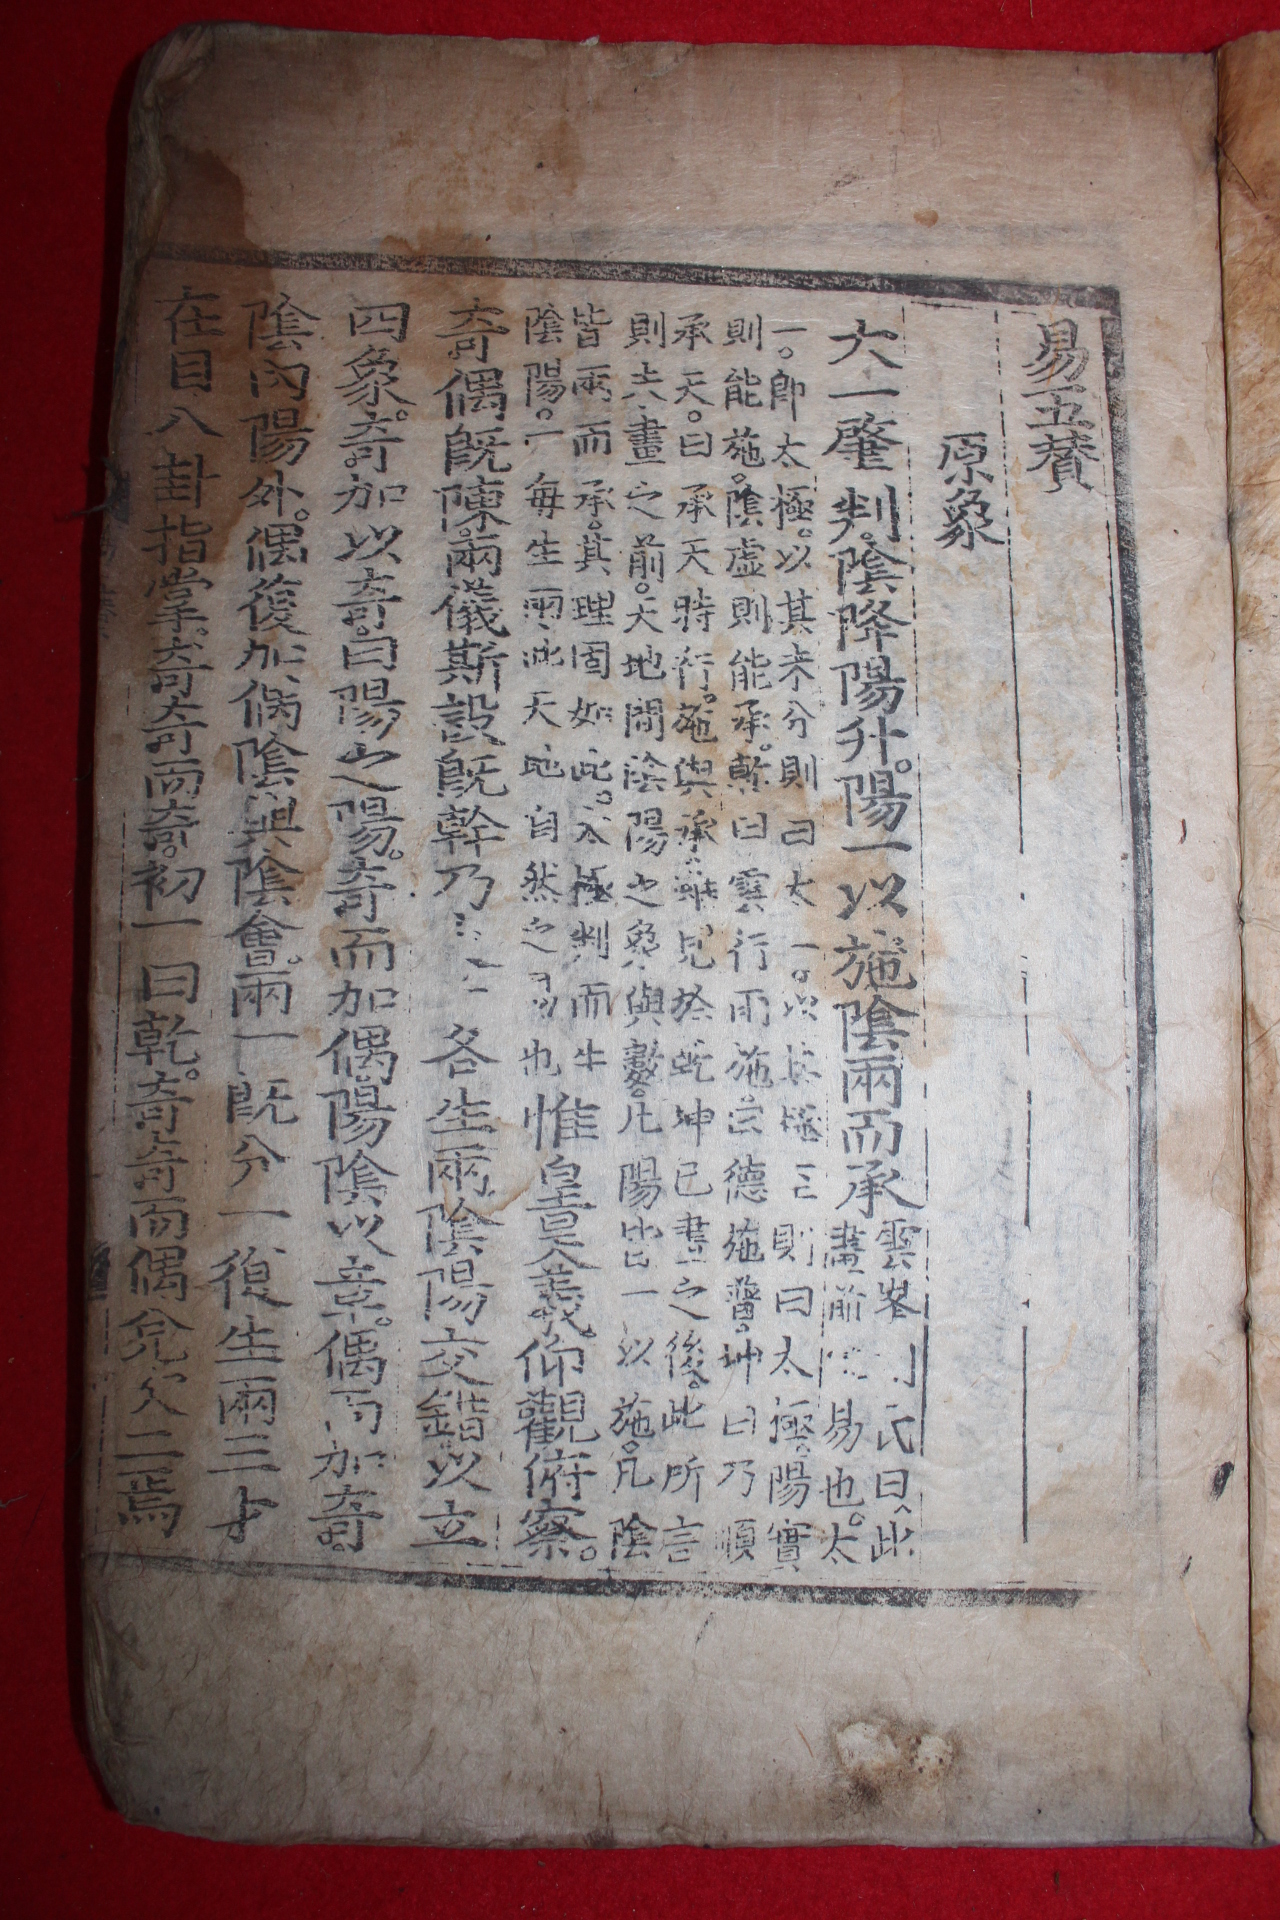 易五贊
原象
大一肇判。陰降陽升。陽一以施陰兩而承雲峯氏曰、此
畫前易也。太
一。卽太極。以其未分則曰太一。以其極則曰太極。陽實
則能施。陰虛則能承。乾曰雲行雨施。德施普。坤曰乃順
承天。曰承天時行。施與承雖見於乾坤已畫之後。此所言
則在六畫之前。天地間陰陽之象與數。凡陽皆一以施。凡陰
皆兩而承。其理固如此。太極判而生
陰陽。一每生兩此天地自然之易也
惟皇昊羲。仰觀俯察。
奇偶旣陳。兩儀斯設旣幹乃各生兩。陰陽交錯以立
四象。奇加以奇。曰陽之陽。奇而加偶。陽陰以章。偶而加奇。
陰內陽外。偶復加偶陰與陰會。兩一旣分一復生兩三才
在目八卦指掌。奇奇而奇。初一曰乾。奇奇而偶兌次二焉